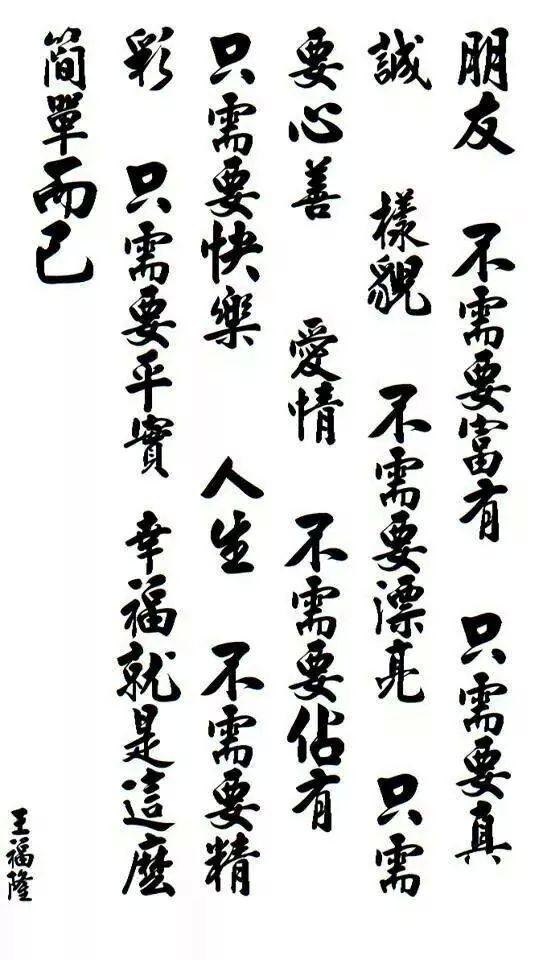 朋友 不需要富有 只需要真
誠 樣貌 不需要漂亮 只需
要心善 愛情 不需要佔有
只需要快樂 人生 不需要精
彩 只需要平實 幸福就是這麼
簡單而已
王福隆